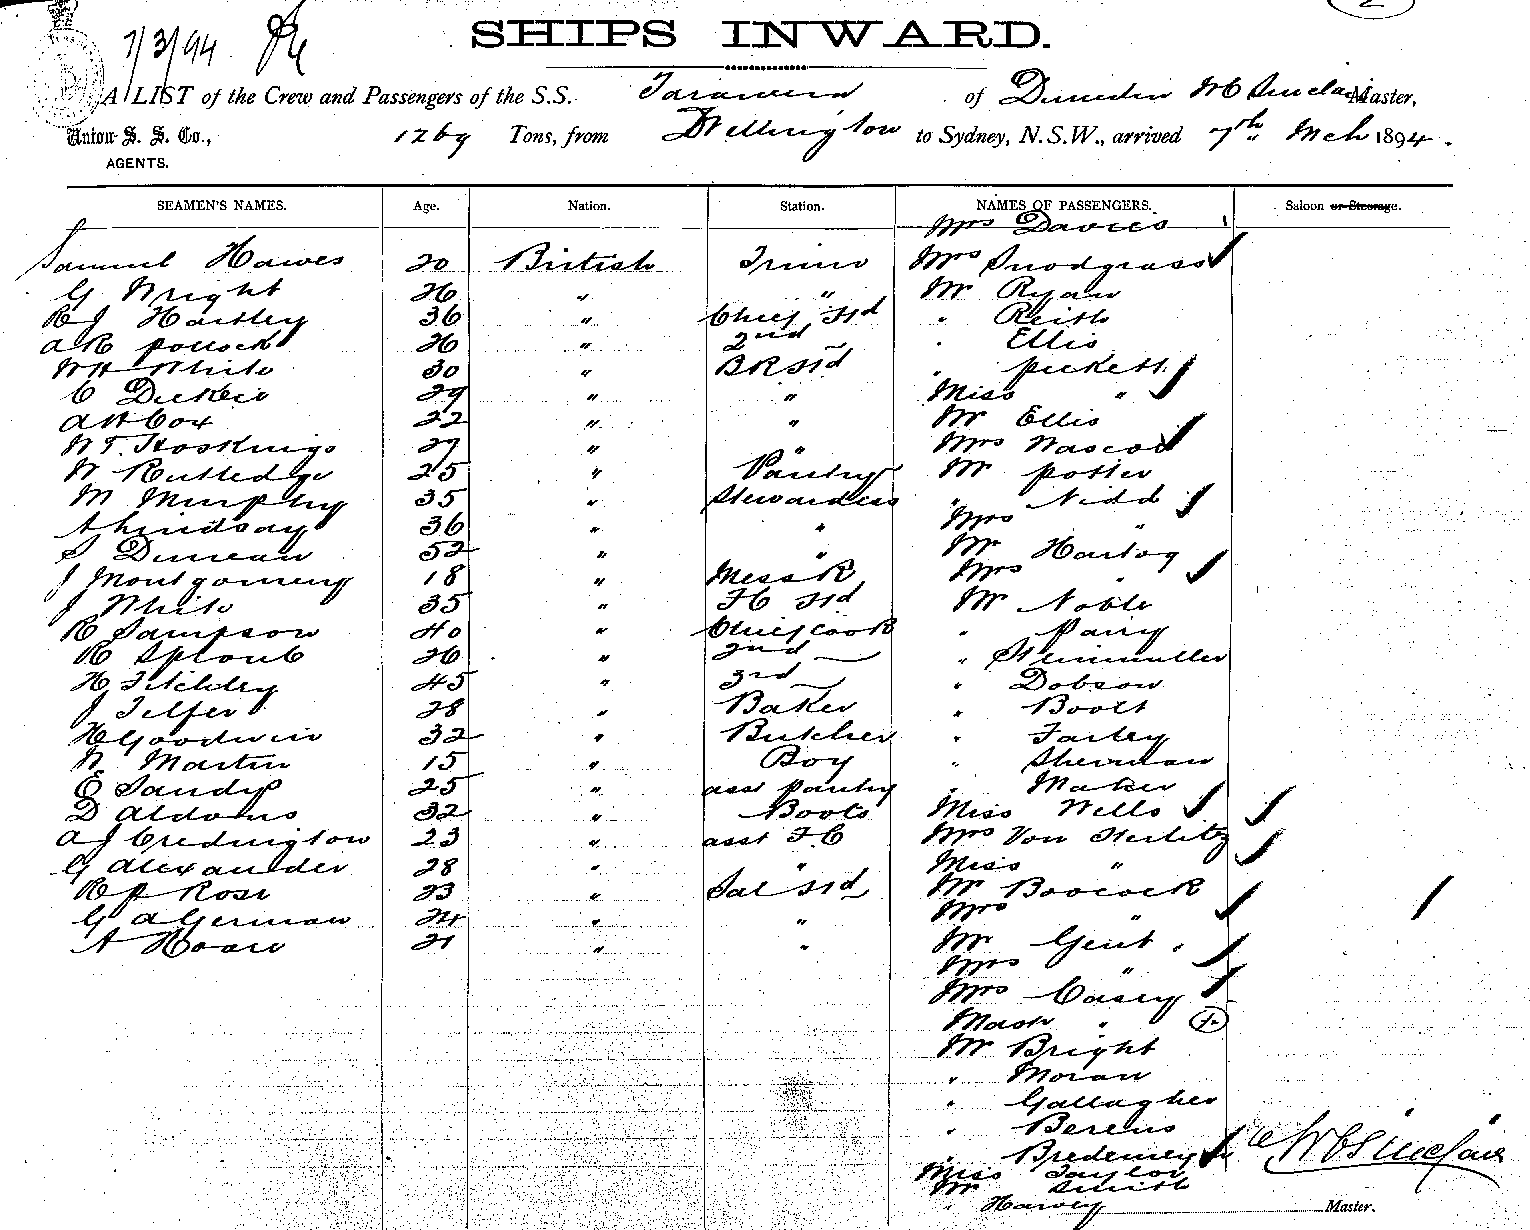 2
7/3/94
SHIPS INWARD.
A LIST of the Crew and Passengers of the S.S. Tarawera of Dunedin W C Sinclair Master,
Union S. S. Co., 1269 Tons, from Wellington to Sydney, N.S.W., arrived 7th Mch 1894.
AGENTS.
SEAMEN'S NAMES. Age. Nation. Station. NAMES OF PASSENGERS. Saloon or Steerage.
Mrs Davies
Samuel Hawes 20 British Trimr Mrs Snodgrass
G Wright 26 " " Mr Ryan
R J Hartley 36 " Chief Std " Reith
A R Pollock 26 " 2nd " Ellis
W H White 30 " BR Std " Pickett
C Dickeir 29 " " Miss "
A H Cox 22 " " Mr Ellis
W T. Hoskings 27 " " Mrs Wascoe
W Rutledge 25 " Pantry Mr Potter
M Murphy 35 " Stewardess " Nidd
A Lindsay 36 " " Mrs "
S Duncan 52 " " Mr Hartog
J Montgomery 18 " Mess R Mrs "
J White 35 " FC Std Mr Noble
R Sampson 40 " Chief Cook " Parry
R Sproul 26 " 2nd — " Steinmuller
H Titchley 45 " 3rd — " Dobson
J Telfer 28 " Baker " Boolt
H Goodwin 32 " Butcher " Farley
W Martin 15 " Boy " Sherman
E Sandys 25 " asst Pantry " Maker
D Aldoms 32 " Boots Miss Wells
A J Credington 23 " asst FC Mrs Von Sterlitz
G Alexander 28 " " Miss "
R P Rose 23 " Sal Std Mr Boocock
G A German 24 " " Mrs "
A Hoare 21 " " Mr Gent
Mrs "
Mrs Casey
Mastr "
Mr Bright
" Moran
" Gallagher
" Berens
" Bredemey
Miss Taylor
Mr Smith
" Harvey
W C Sinclair
Master.